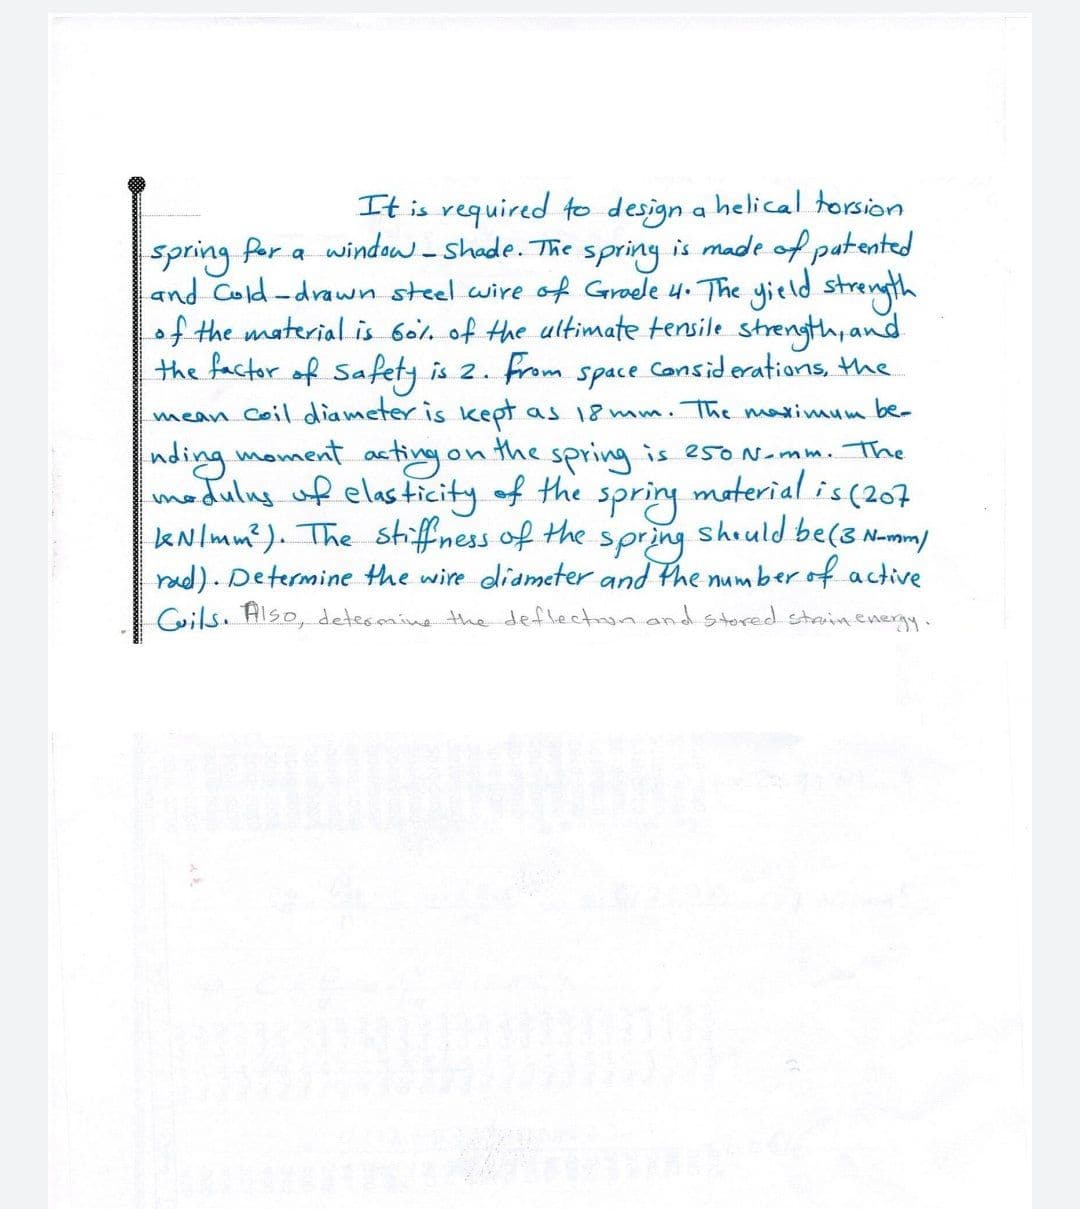 It is required to design a helical torsion
spring for a window - shade. The spring is made of patented
and Cold - drawn steel wire of Grade 4. The yield strength
of the material is 60% of the ultimate tensile strength, and
the factor of safety is 2. From space Considerations, the
mean Coil diameter is kept as 18 mm. The maximum be-
nding moment acting on the spring is 250 N-mm. The
modulus of elasticity of the spring material is (207
kN/mm²). The stiffness of the spring should be (3 N-mm/
rad). Determine the wire diameter and the number of active
Coils. Also, determine the deflection and stored strain energy.